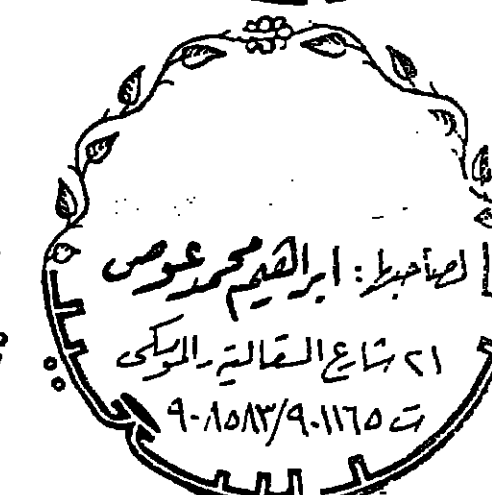 لصاحبها: ابراهيم محمد عوض
٢١ شارع السقالة - الموسكى
ت ٩٠١١٦٥/٩٠٨٥٨٣